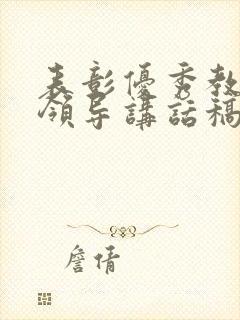 表彰優秀教
領导講話稿
詹倩